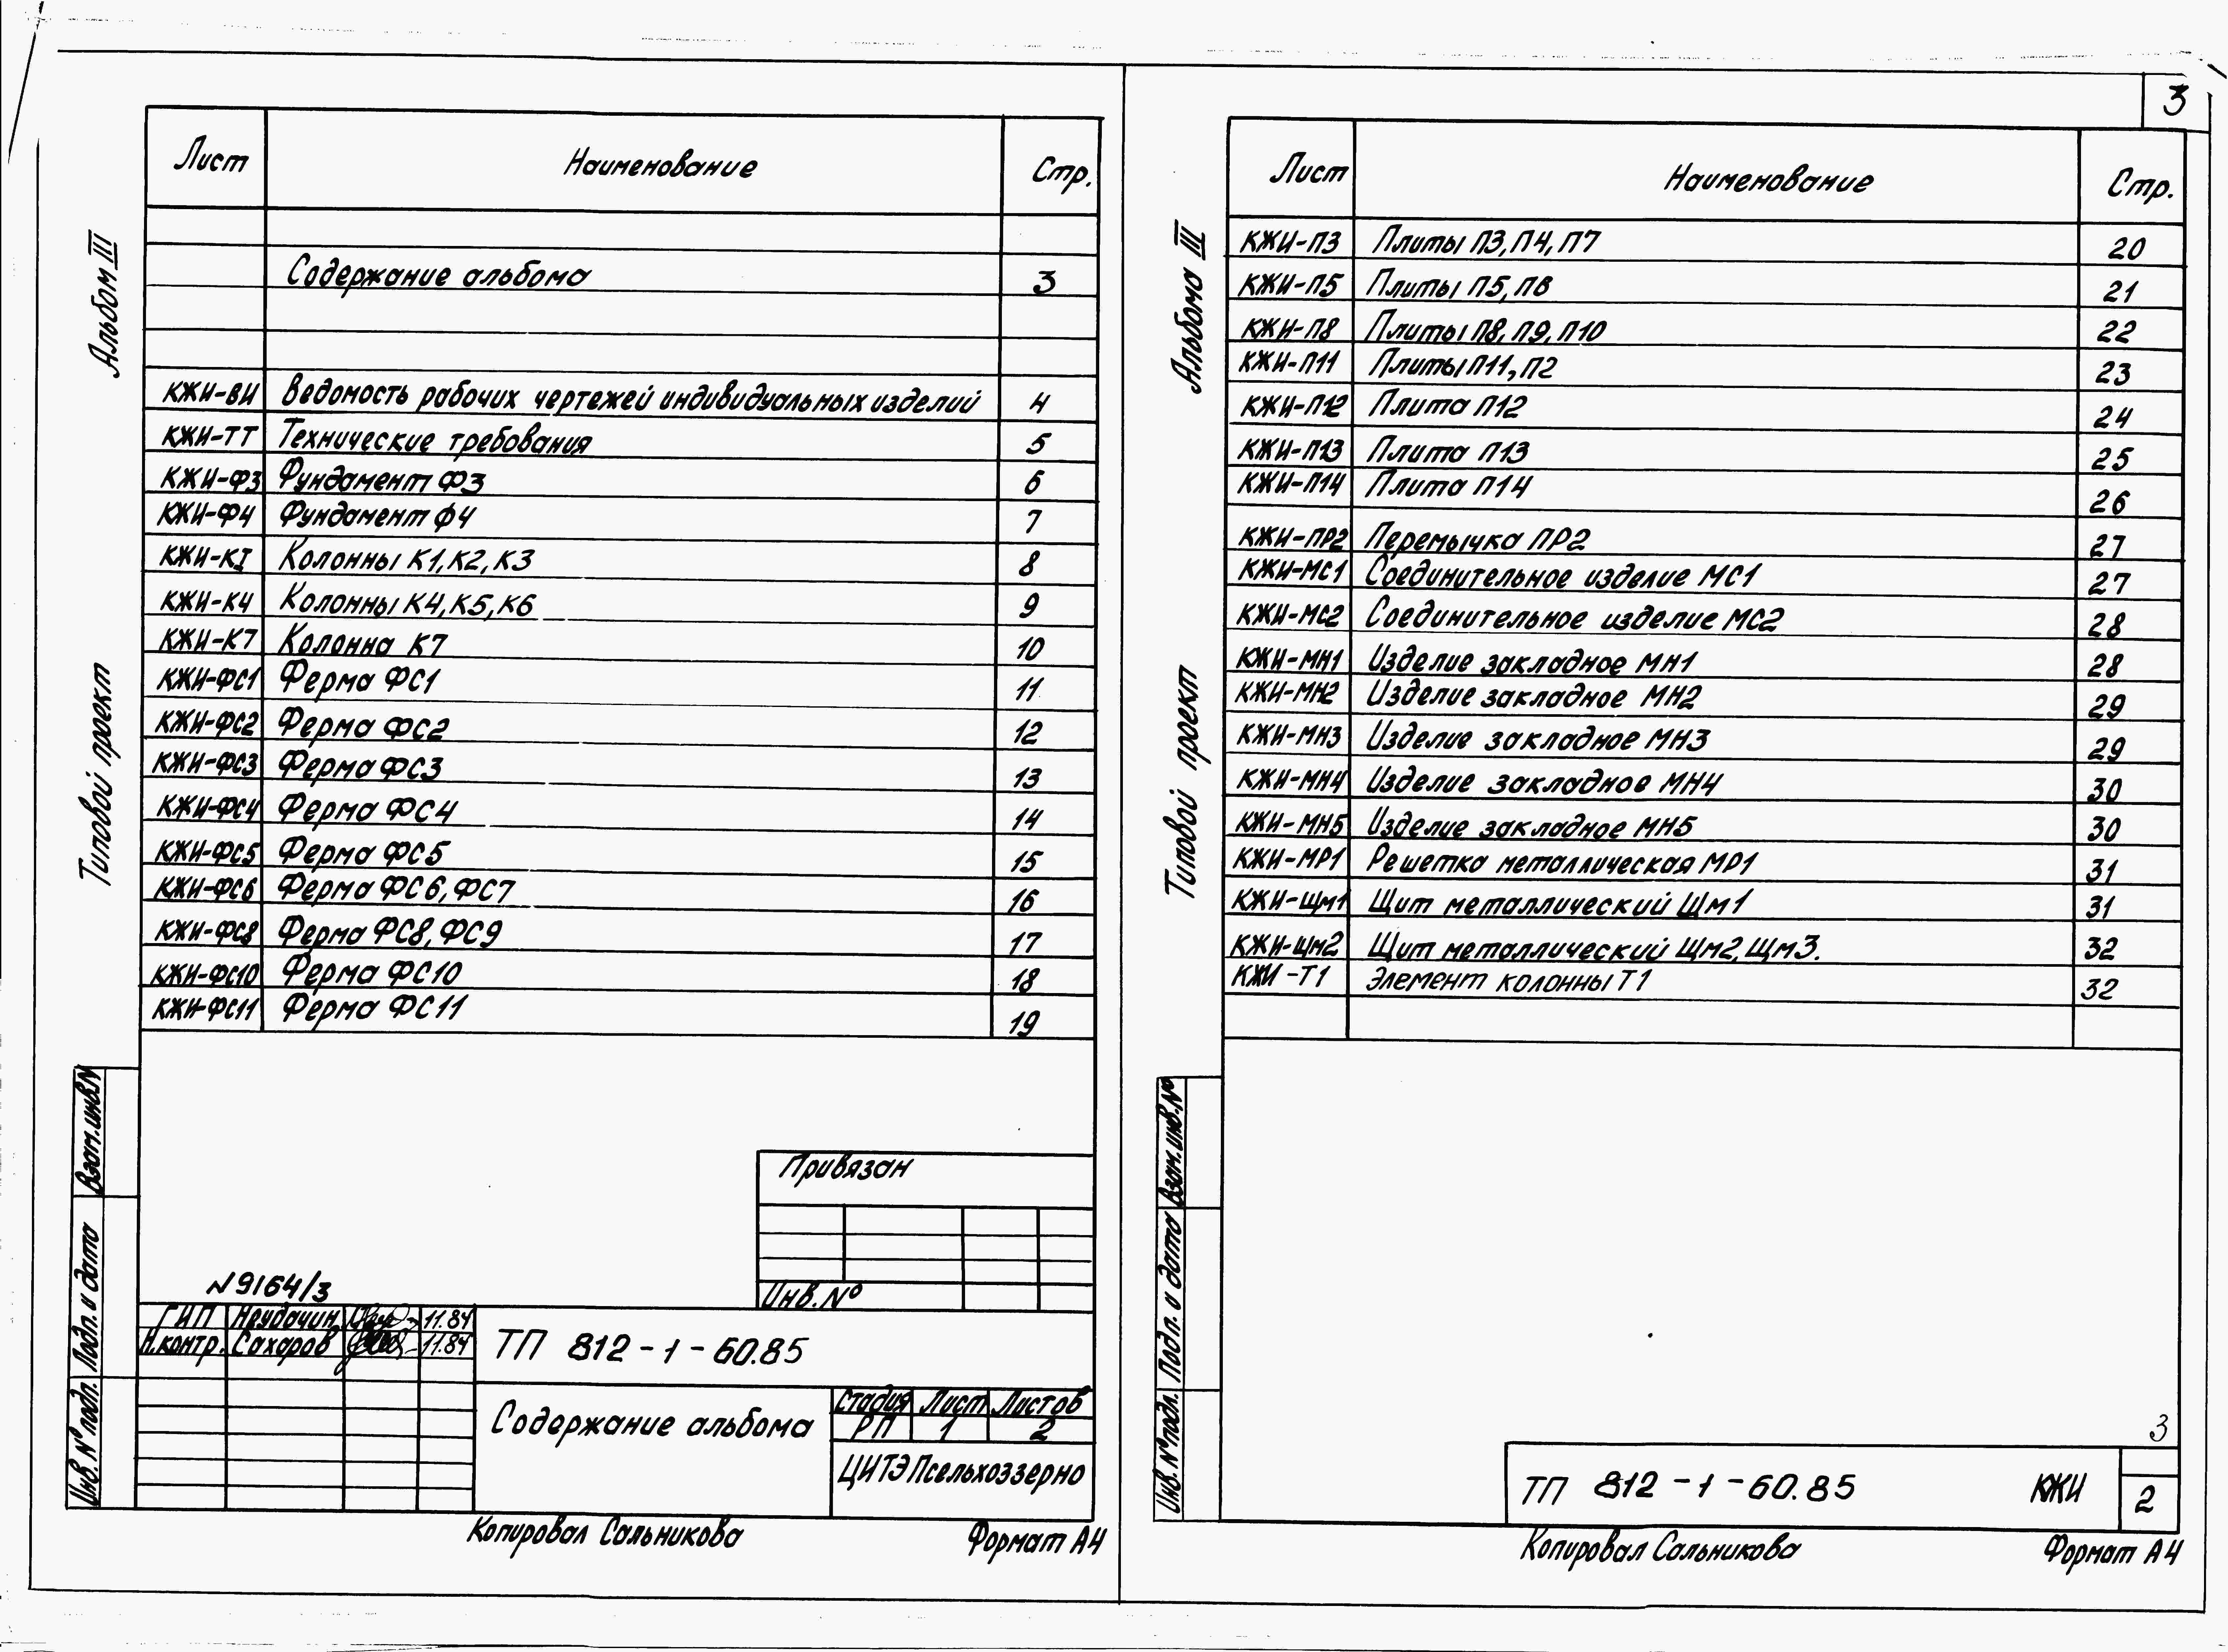 3
Альбом III
Типовой проект
Лист Наименование Стр.
Содержание альбома 3
КЖИ-ВИ Ведомость рабочих чертежей индивидуальных изделий 4
КЖИ-ТТ Технические требования 5
КЖИ-Ф3 Фундамент Ф3 6
КЖИ-Ф4 Фундамент Ф4 7
КЖИ-КI Колонны К1, К2, К3 8
КЖИ-К4 Колонны К4, К5, К6 9
КЖИ-К7 Колонна К7 10
КЖИ-ФС1 Ферма ФС1 11
КЖИ-ФС2 Ферма ФС2 12
КЖИ-ФС3 Ферма ФС3 13
КЖИ-ФС4 Ферма ФС4 14
КЖИ-ФС5 Ферма ФС5 15
КЖИ-ФС6 Ферма ФС6, ФС7 16
КЖИ-ФС8 Ферма ФС8, ФС9 17
КЖИ-ФС10 Ферма ФС10 18
КЖИ-ФС11 Ферма ФС11 19
Взам.инв.N
Подп. и дата
Инв. №подл.
Привязан
Инв. №
N9164/3
ГИП Неудачин 11.84
Н.контр. Сахаров 11.84
ТП 812-1-60.85
Содержание альбома
Стадия Лист Листов
РП 1 2
ЦИТЭПсельхоззерно
Копировал Сальникова Формат А4
Альбома III
Типовой проект
Лист Наименование Стр.
КЖИ-П3 Плиты П3, П4, П7 20
КЖИ-П5 Плиты П5, П6 21
КЖИ-П8 Плиты П8, П9, П10 22
КЖИ-П11 Плиты П11, П2 23
КЖИ-П12 Плита П12 24
КЖИ-П13 Плита П13 25
КЖИ-П14 Плита П14 26
КЖИ-ПР2 Перемычка ПР2 27
КЖИ-МС1 Соединительное изделие МС1 27
КЖИ-МС2 Соединительное изделие МС2 28
КЖИ-МН1 Изделие закладное МН1 28
КЖИ-МН2 Изделие закладное МН2 29
КЖИ-МН3 Изделие закладное МН3 29
КЖИ-МН4 Изделие закладное МН4 30
КЖИ-МН5 Изделие закладное МН5 30
КЖИ-МР1 Решетка металлическая МР1 31
КЖИ-Щм1 Щит металлический Щм1 31
КЖИ-Щм2 Щит металлический Щм2, Щм3. 32
КЖИ-Т1 Элемент колонны Т1 32
Взам.инв.№
Подп. и дата
Инв. №подл.
3
ТП 812-1-60.85 КЖИ 2
Копировал Сальникова Формат А4